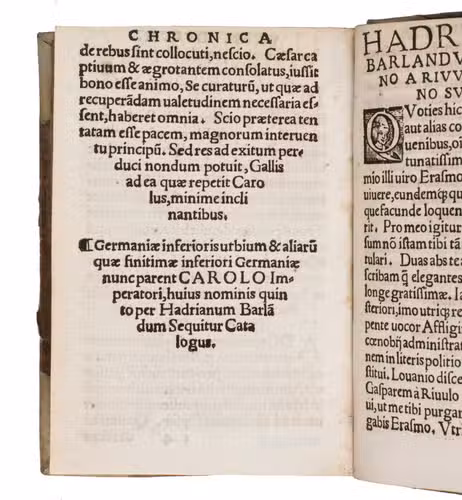 CHRONICA
de rebus sint collocuti, nescio. Cæsar ca
ptiuum & ægrotantem consolatus, iussit
bono esse animo, Se curaturũ, ut quæ ad
recuperãdam ualetudinem necessaria es⸗
sent, haberet omnia. Scio præterea ten
tatam esse pacem, magnorum interuen
tu principũ. Sed res ad exitum per⸗
duci nondum potuit, Gallis
ad ea quæ repetit Caro
lus, minime incli
nantibus.
¶ Germaniæ inferioris urbium & aliarũ
quæ finitimæ inferiori Germaniæ
nunc parent CAROLO Im⸗
peratori, huius nominis quin
to per Hadrianum Barlã
dum Sequitur Cata
logus.
HADR
BARLANDV
NO A RIVV
NO SV
QVoties hic
aut alias co
quenibus, oi
tunatissim
mio illi uiro Erasmo
uiuere, cundemq; qu
que facunde loquen
rit. Pro meo igitur
sum nõ istam tibi tã
tulari. Duas abs te
scribam q̃ elegantes
longe gratissimæ. Ia
steriori, imo utriq; re
pente uocor Affligi
cœnobij administrat
nem in literis politio
stitui. Louanio disce
Gasparem à Riuulo
ui, ut me tibi purgar
gabis Erasmo. Vtr